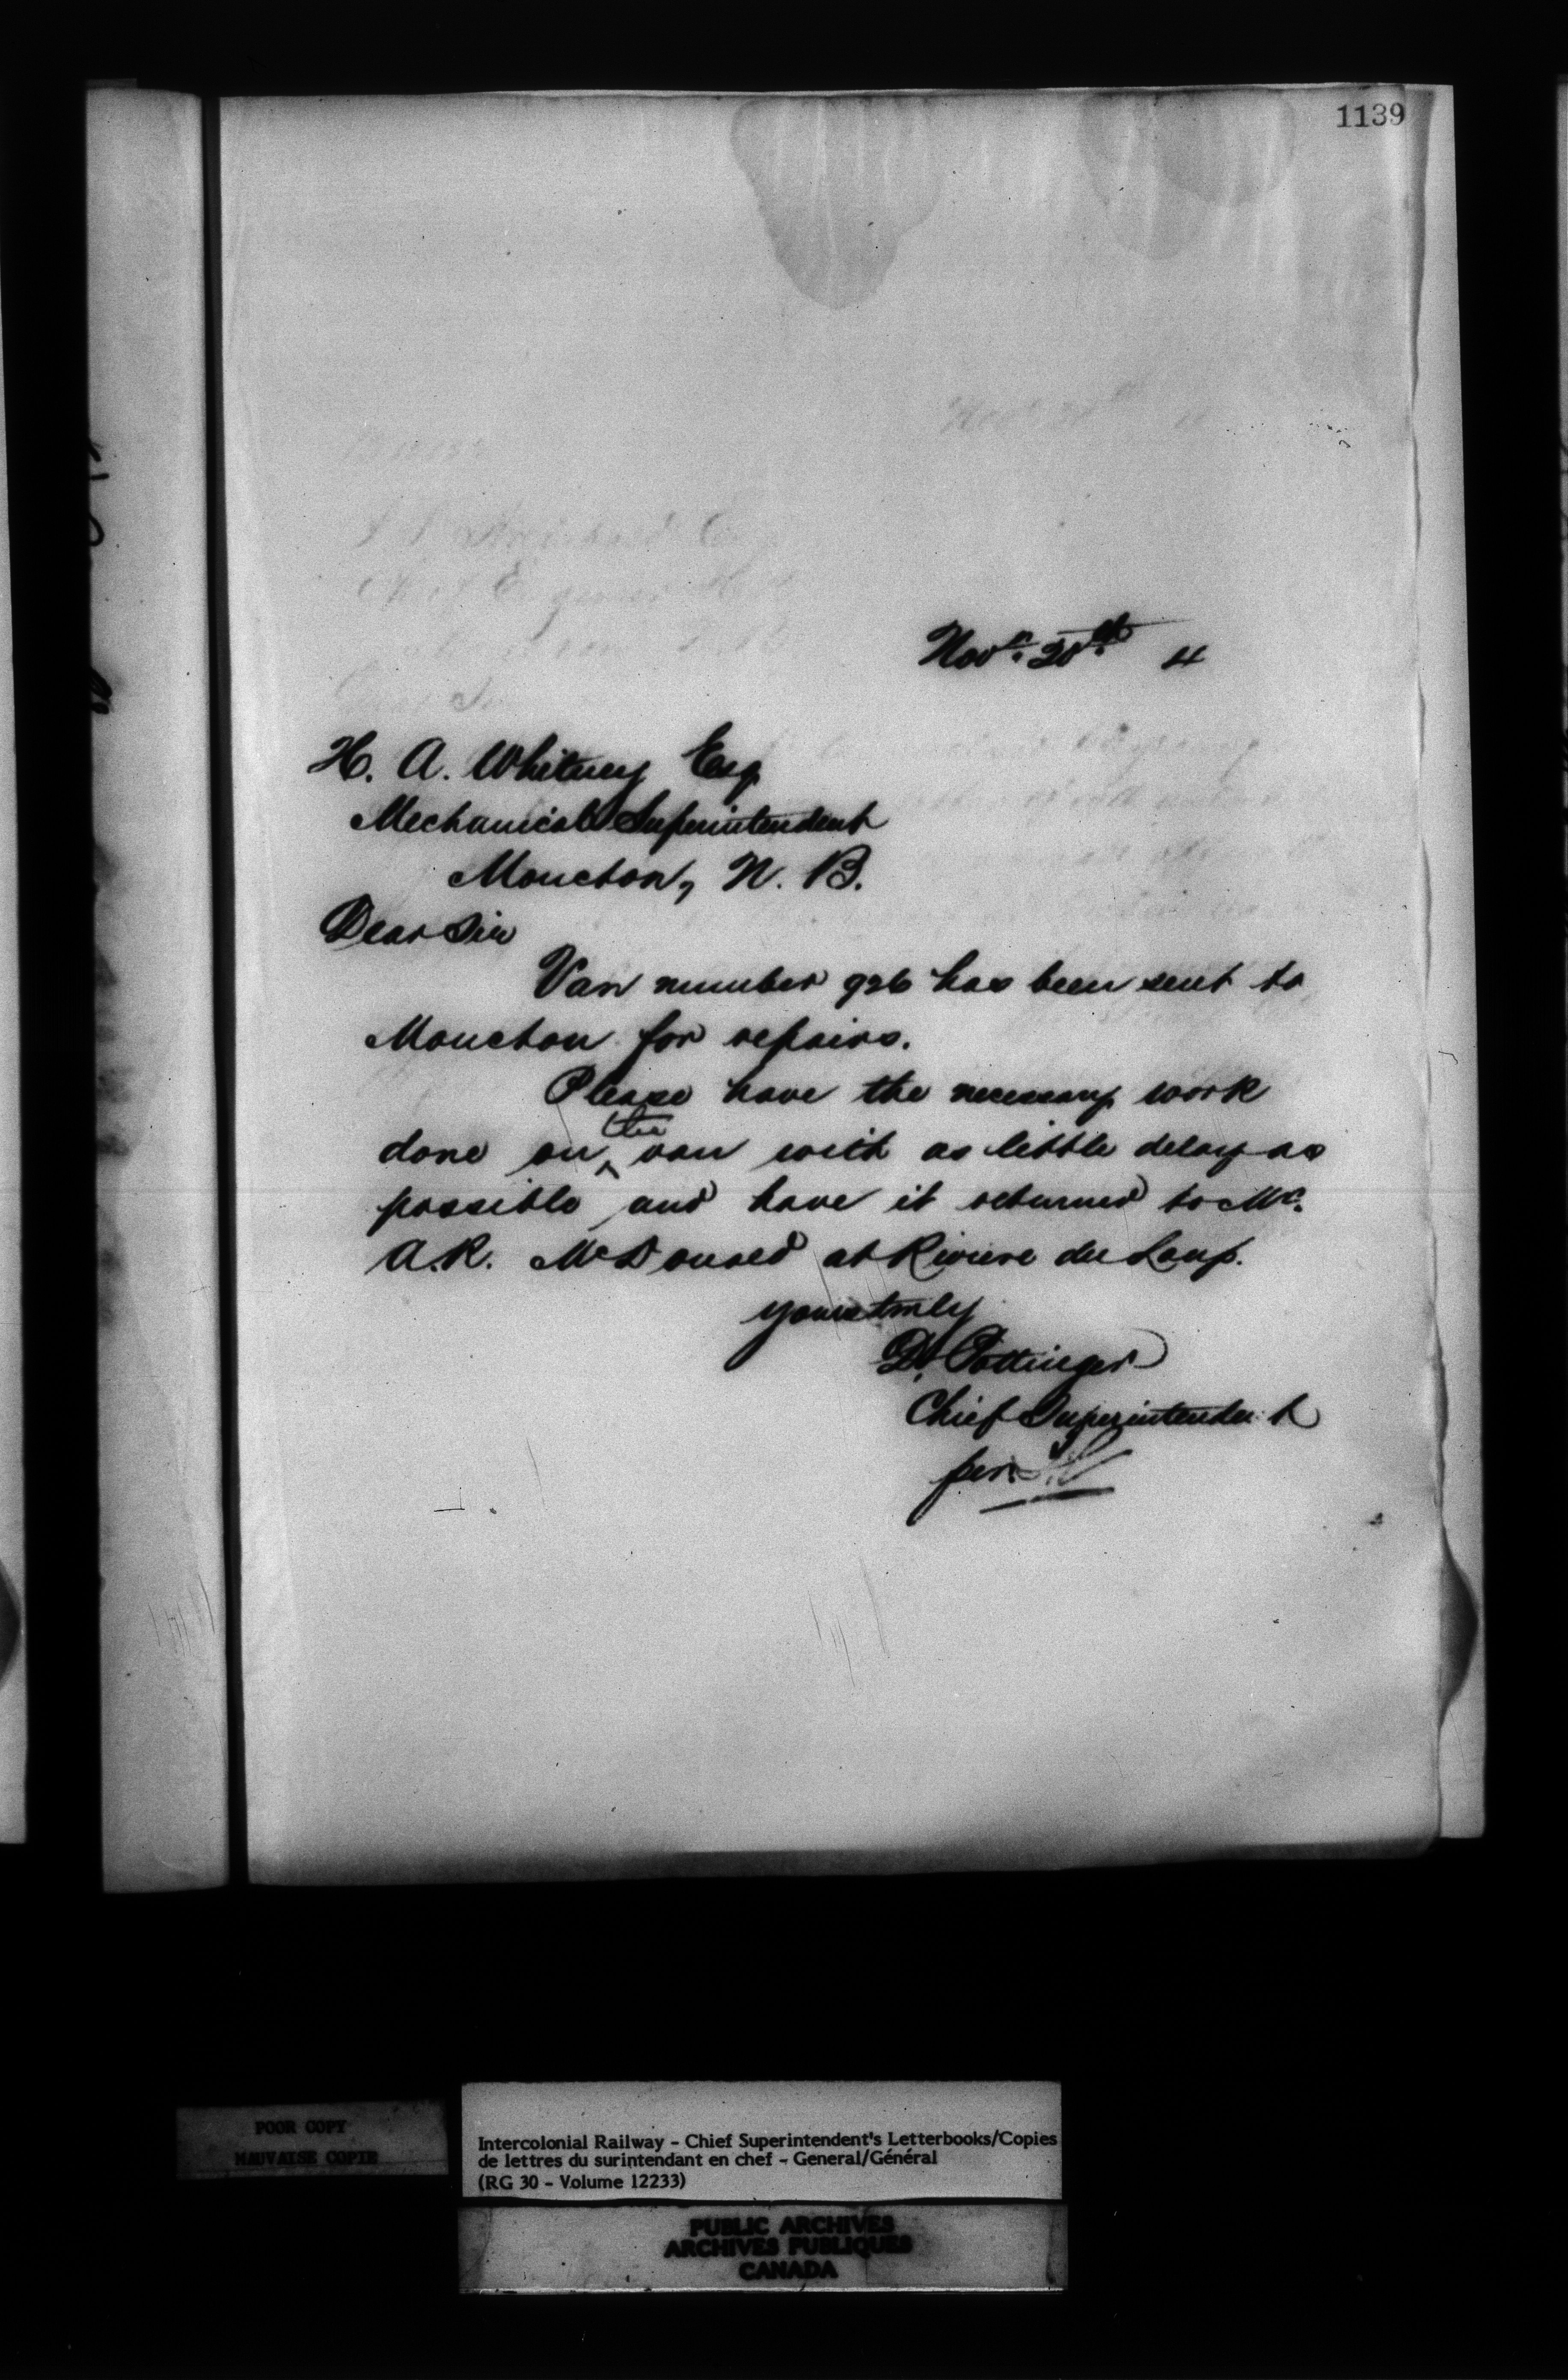 1139
Novr. 20th 4
H. A. Whitney Esq
Mechanical Superintendent
Moncton, N. B.
Dear Sir
Van number 926 has been sent to
Moncton for repairs.
Please have the necessary work
done on ^the van with as little delay as
possible and have it returned to Mr.
A.R. McDonald at Riviere du Loup.
yours truly
D. Pottinger
Chief Superintendent
per
POOR COPY
MAUVAISE COPIE
Intercolonial Railway - Chief Superintendent's Letterbooks/Copies
de lettres du surintendant en chef - General/Général
(RG 30 - Volume 12233)
PUBLIC ARCHIVES
ARCHIVES PUBLIQUES
CANADA